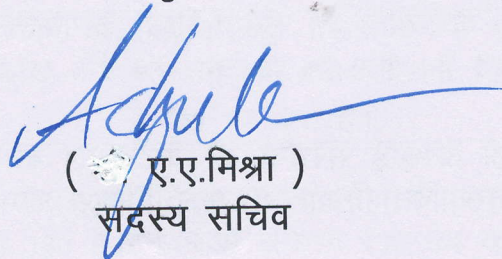 ( ए.ए.मिश्रा )
सदस्य सचिव